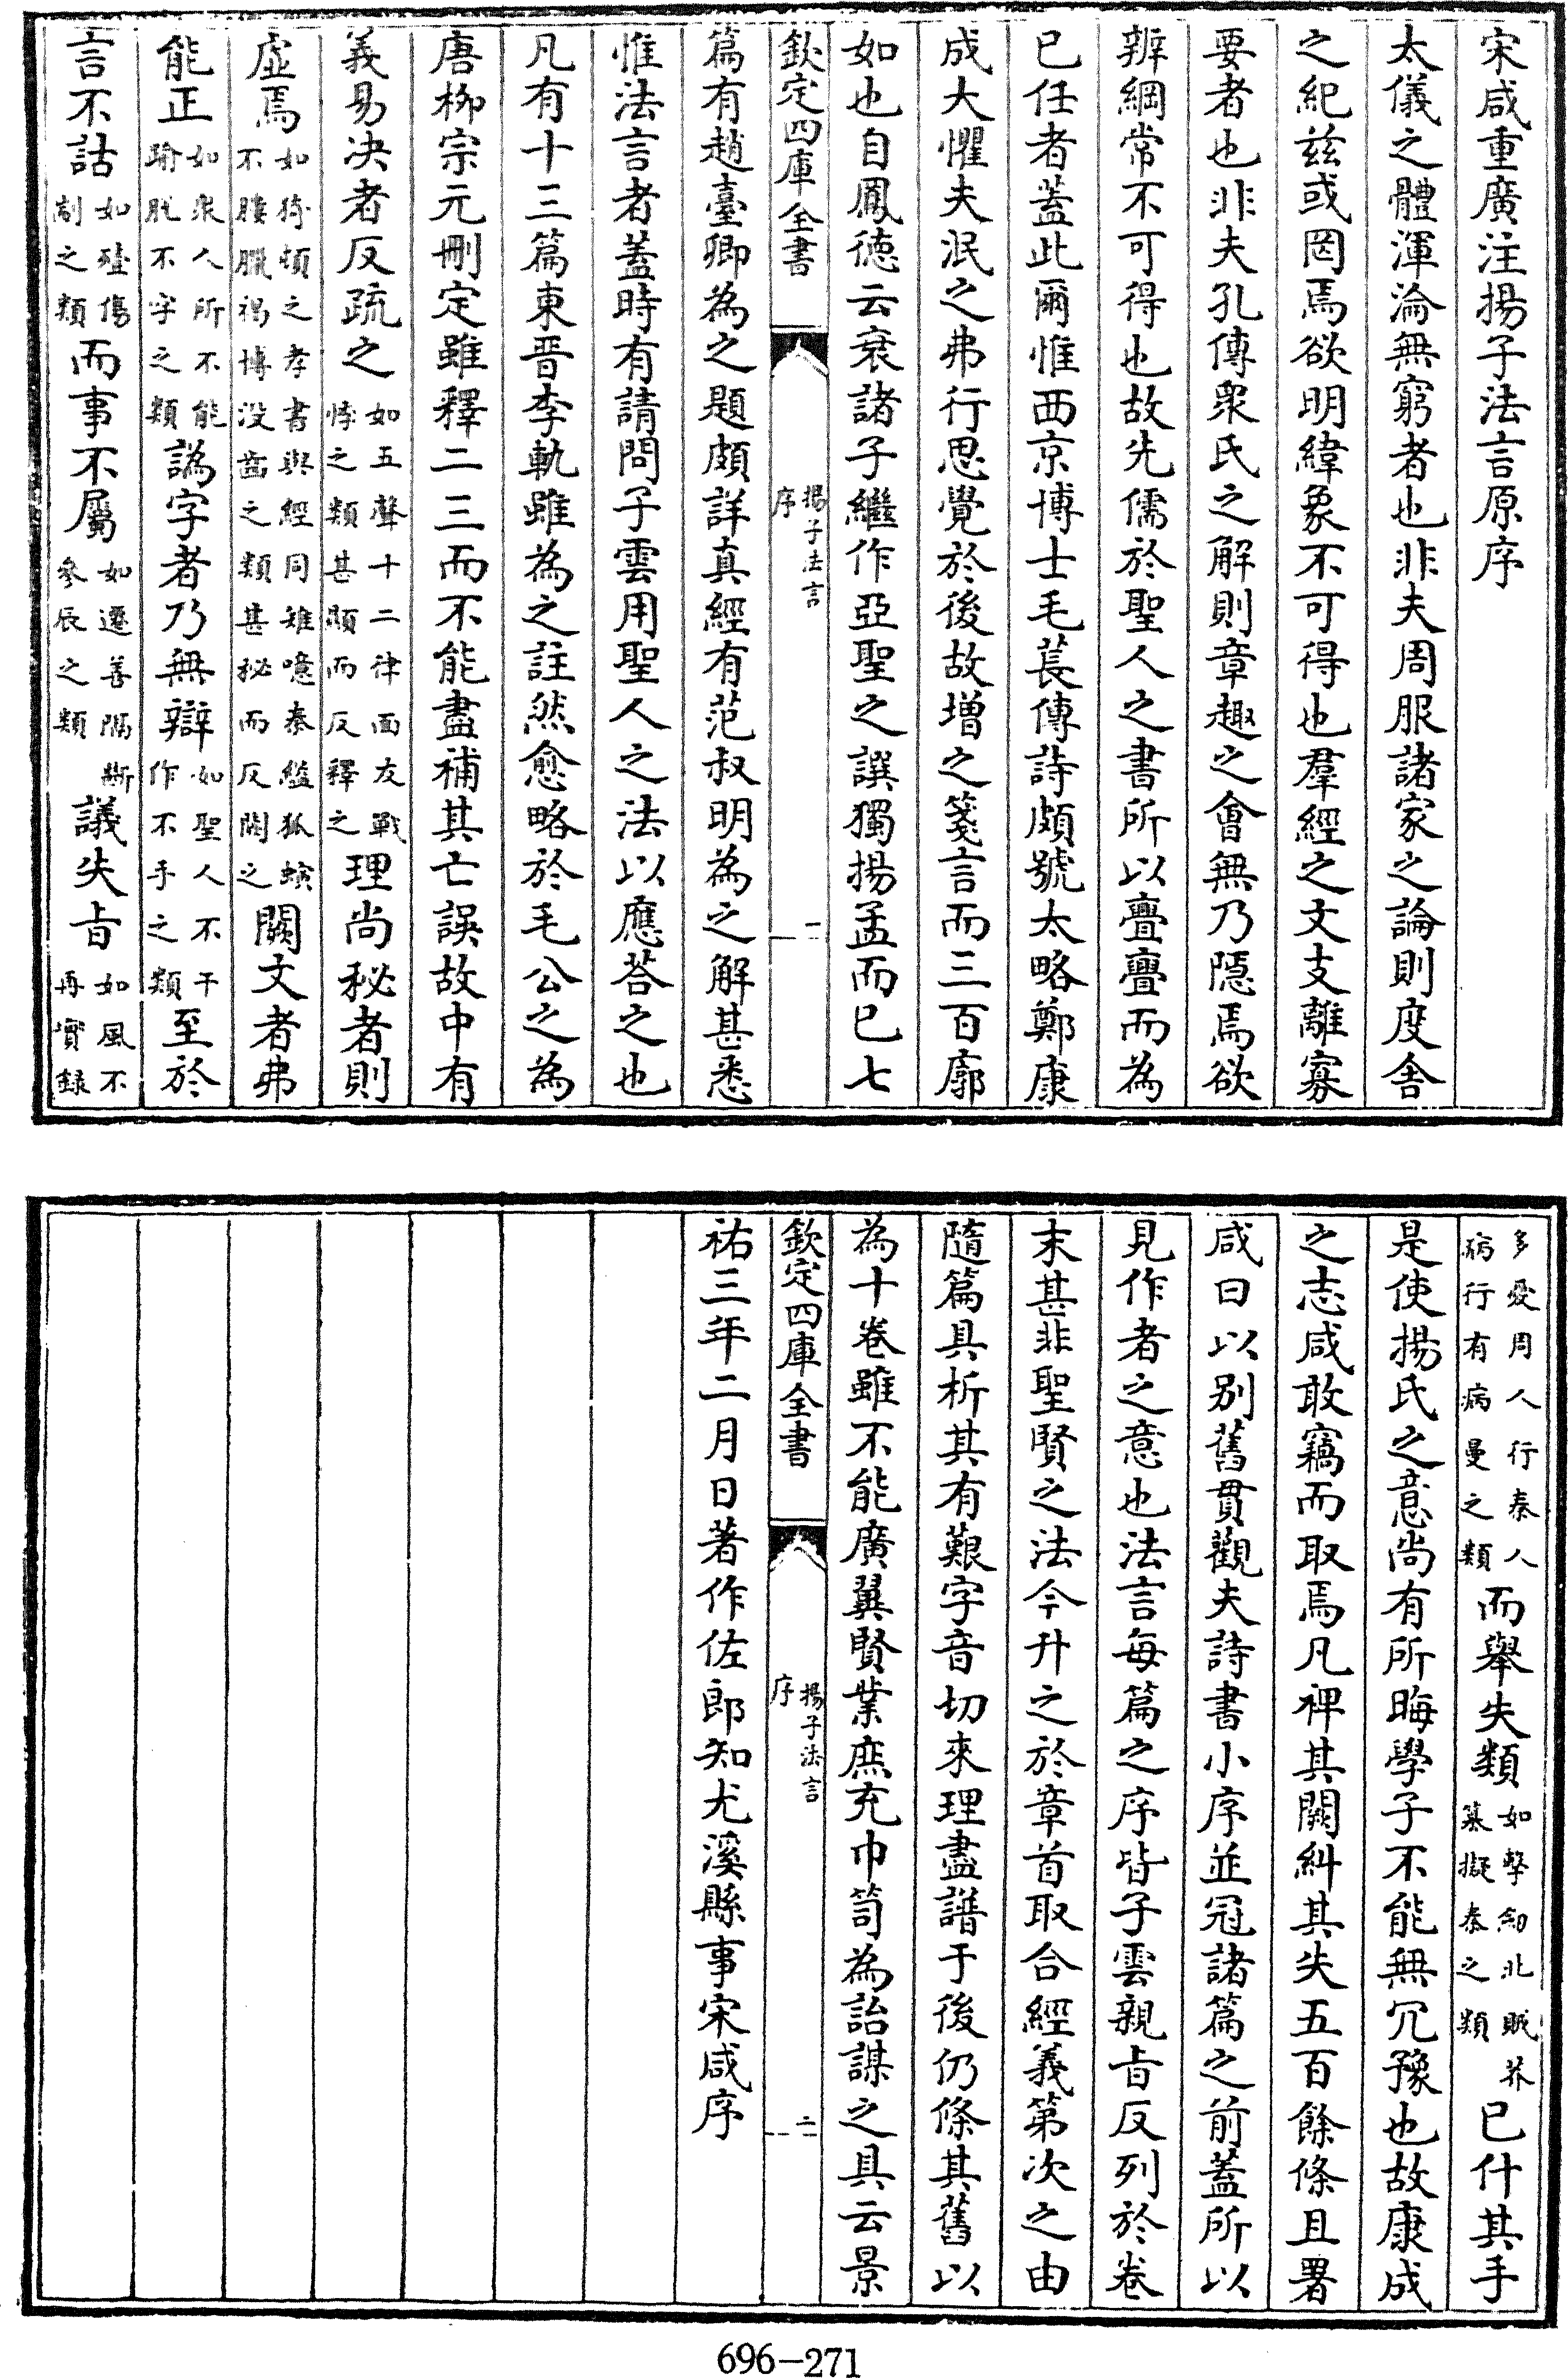 宋咸重廣注揚子法言原序
太儀之體渾淪無窮者也非夫周服諸家之論則度舍
之紀兹或罔焉欲明緯象不可得也羣經之文支離寡
要者也非夫孔傳衆氏之解則章趣之會無乃隠焉欲
辨綱常不可得也故先儒於聖人之書所以亹亹而為
已任者蓋此爾惟西京博士毛萇傳詩頗號太略鄭康
成大懼夫泯之弗行思覺於後故増之箋言而三百廓
如也自鳳德云衰諸子繼作亞聖之譔獨揚孟而已七
欽定四庫全書
揚子法言
序
一
篇有趙臺卿為之題頗詳真經有范叔明為之解甚悉
惟法言者蓋時有請問子雲用聖人之法以應荅之也
凡有十三篇東晋李軌雖為之註然愈略於毛公之為
唐柳宗元刪定雖釋二三而不能盡補其亡誤故中有
義易决者反疏之如五聲十二律面友戰悖之類甚顯而反釋之理尚秘者則
虚焉如猗頓之孝書與經同雉噫秦繿狐螾不膢臘禓博没齒之類甚秘而反闕之闕文者弗
能正如衆人所不能踰脱不字之類譌字者乃無辯如聖人不干作不手之類至於
言不詁如殪傷劀之類而事不屬如遷善隔斷參辰之類議失㫖如風不再實録
多愛周人行秦人病行有病曼之類而舉失類如擊劒北賊芥纂擬秦之類已什其手
是使揚氏之意尚有所晦學子不能無冗豫也故康成
之志咸敢竊而取焉凡裨其闕糾其失五百餘條且署
咸曰以别舊貫觀夫詩書小序並冠諸篇之前蓋所以
見作者之意也法言每篇之序皆子雲親㫖反列於卷
末甚非聖賢之法今升之於章首取合經義第次之由
隨篇具析其有艱字音切來理盡譜于後仍條其舊以
為十卷雖不能廣翼賢業庶充巾笥為詒謀之具云景
欽定四庫全書
揚子法言
序
二
祐三年二月日著作佐郎知尤溪縣事宋咸序
696-271